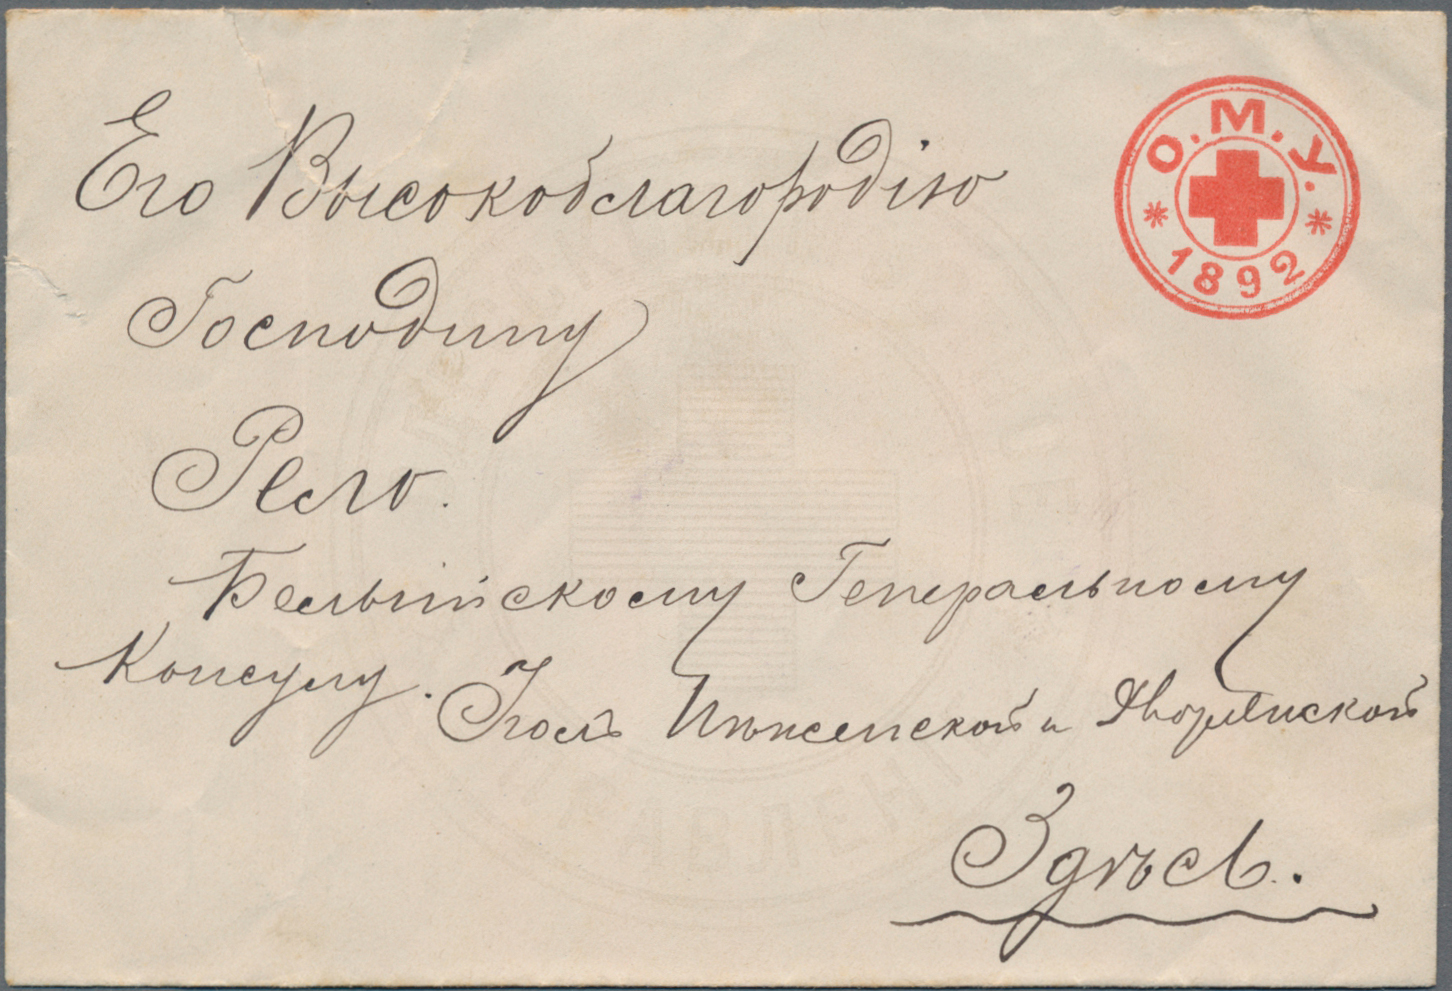 О.М.У.
1892
Его Высокоблагородію
Господину
Рело.
Бельгійскому Генеральному
Консулу. Уголъ Княжеской и Дворянской
Здѣсь.